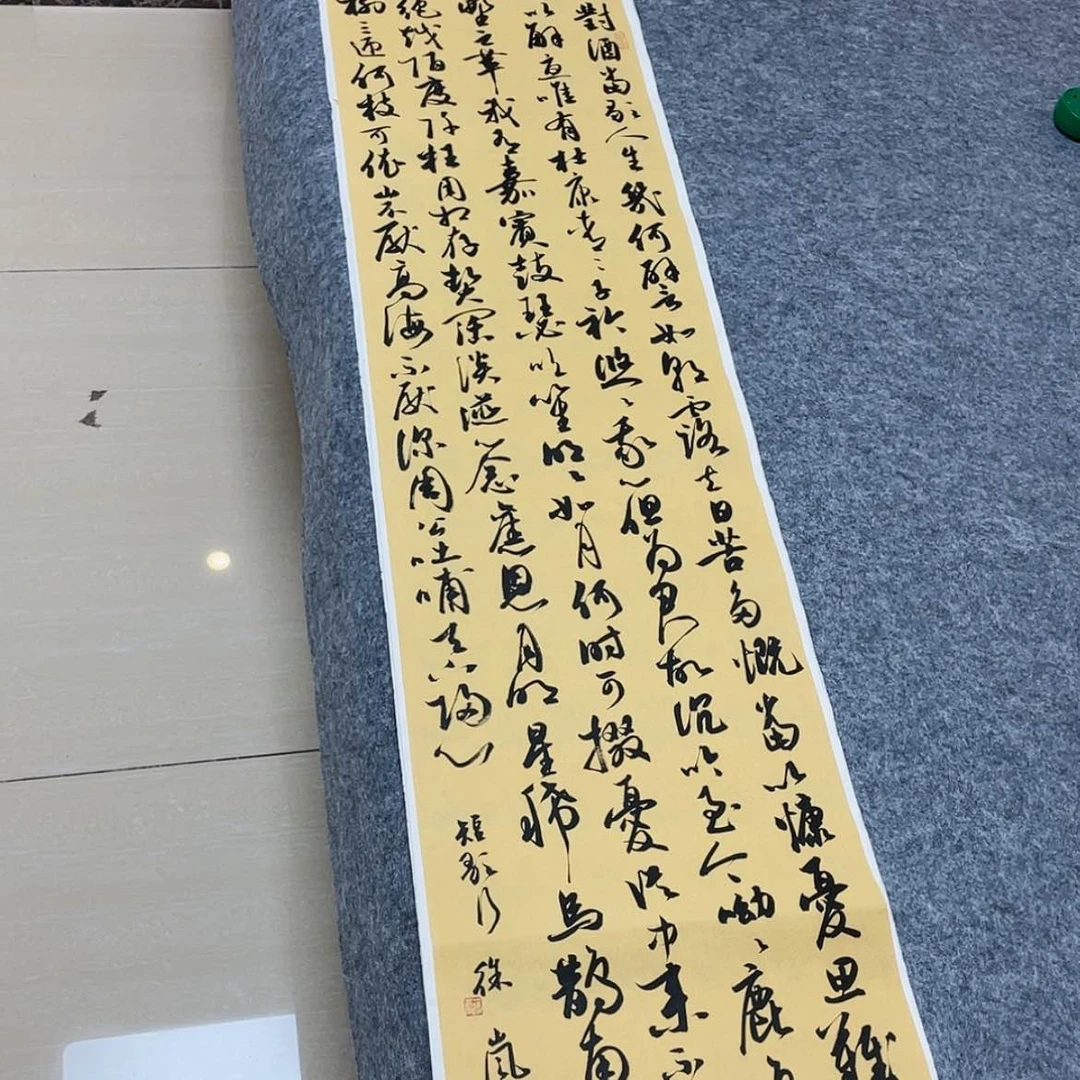 對酒當歌人生幾何譬如朝露去日苦多慨當以慷憂思難
以解憂唯有杜康青〻子衿悠〻我心但为君故沉吟至今呦〻鹿
野之苹我有嘉賓鼓瑟吹笙明〻如月何时可掇憂從中来不
絶越陌度阡枉用相存契闊談讌心念舊恩月明星稀烏鵲南
樹三匝何枝可依山不厭高海不厭深周公吐哺天下歸心
短歌行 徐嵐